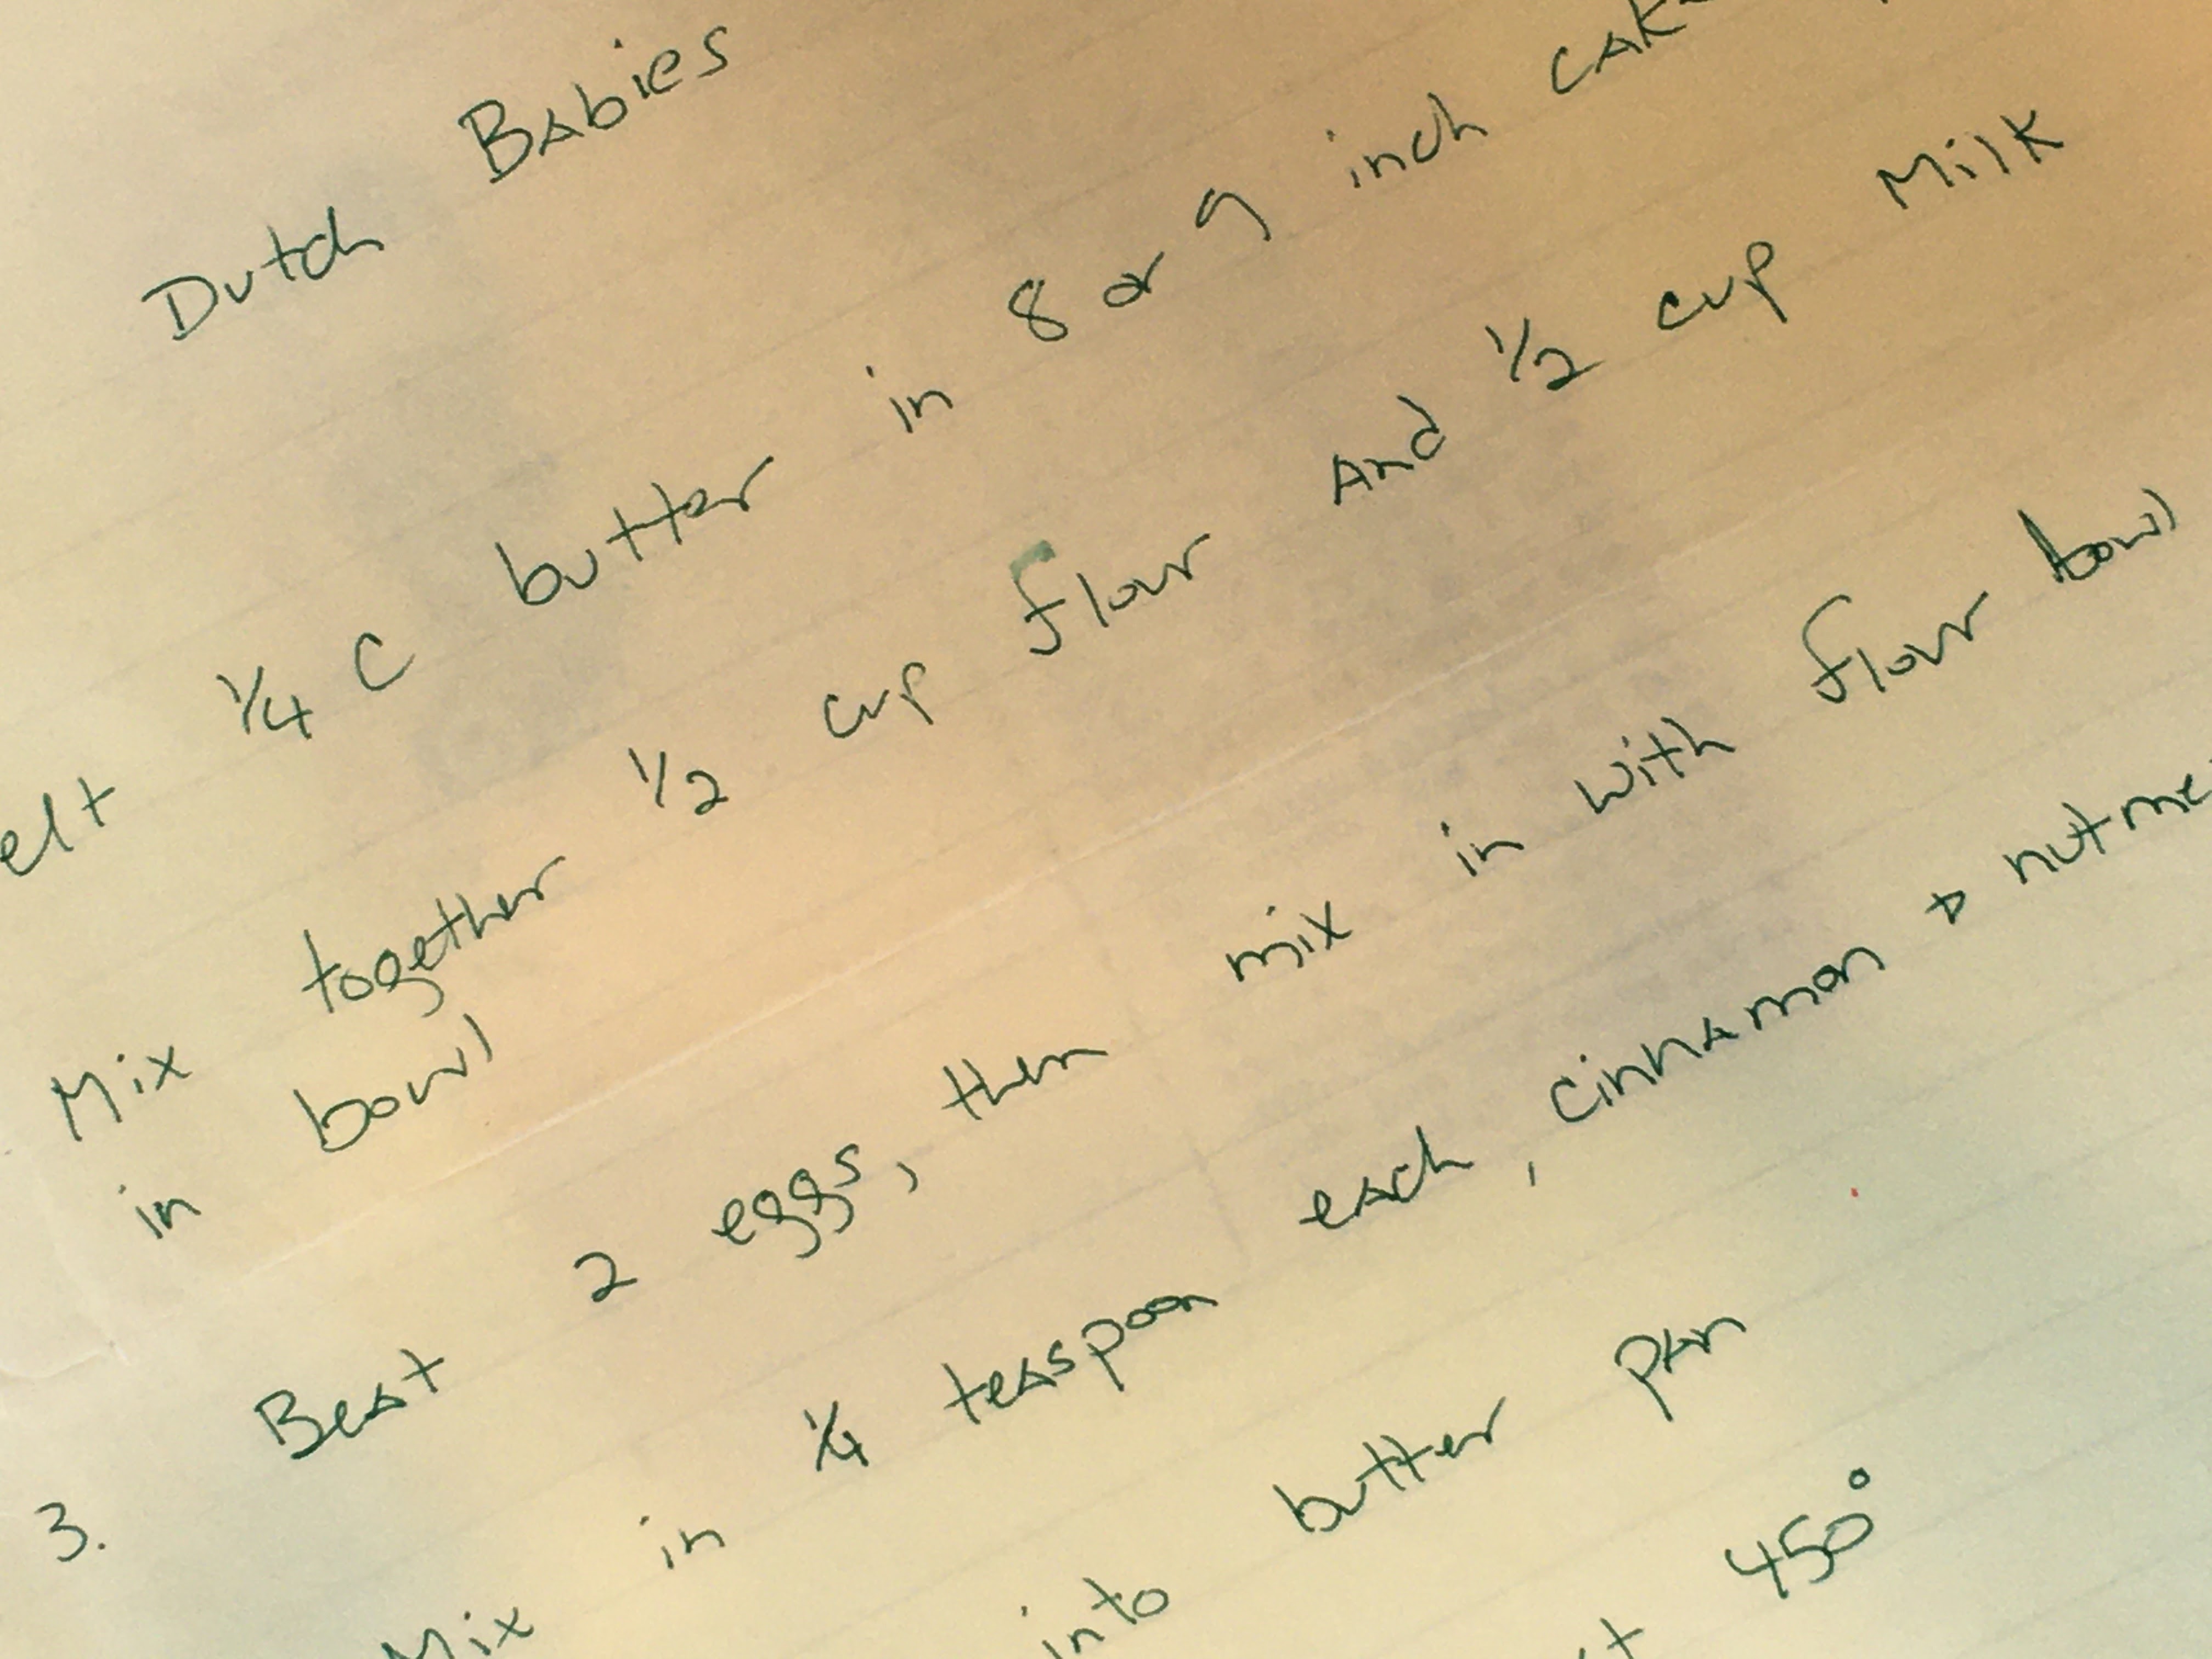 Dutch Babies
elt 1/4 C butter in 8 or 9 inch cak
Mix together 1/2 cup flour And 1/2 cup Milk
in bowl
3. Beat 2 eggs, then mix in with flour bowl
Mix in 1/4 teaspoon each, cinnamon & nutme
into butter pan
t 450°